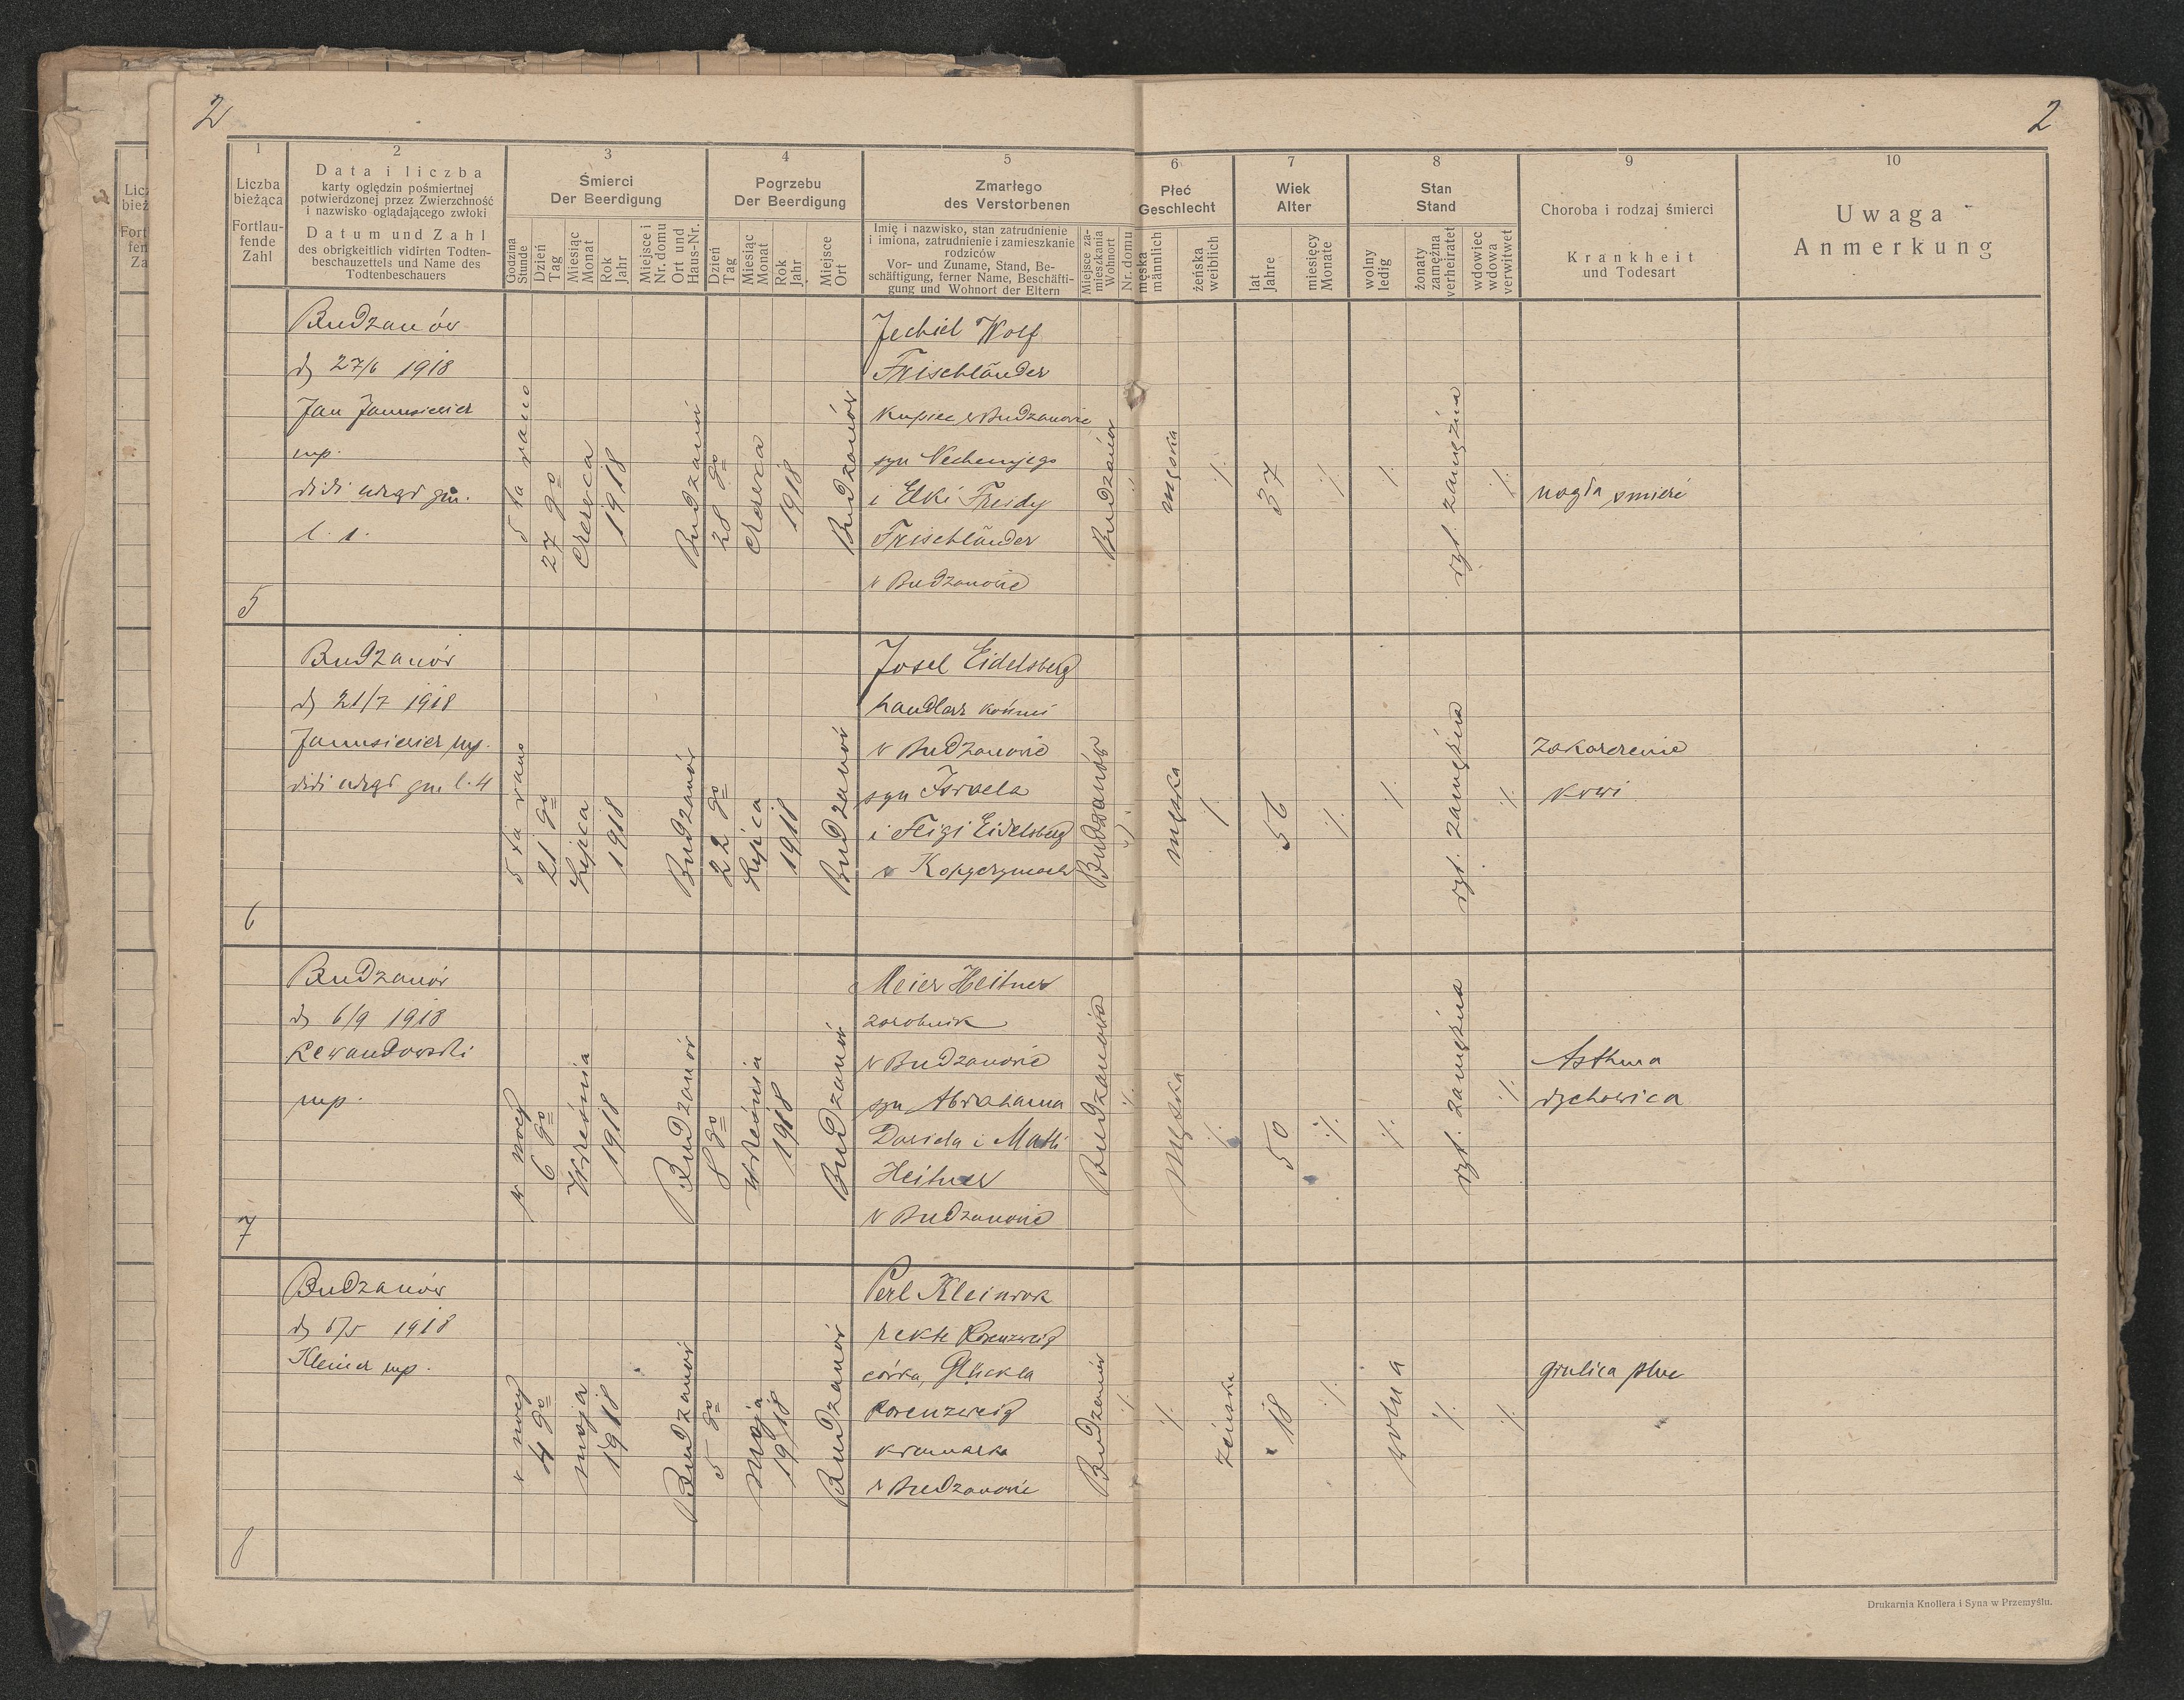 2
2
1
Liczba
bieżąca
Fortlau-
fende
Zahl
2
Data i liczba
karty oględzin pośmiertnej
potwierdzonej przez Zwierzchność
i nazwisko oglądającego zwłoki
Datum und Zahl
des obrigkeitlich vidirten Todten-
beschauzettels und Name des
Todtenbeschauers
3
Śmierci
Der Beerdigung
Godzina
Stunde
Dzień
Tag
Miesiąc
Monat
Rok
Jahr
Miejsce i
Nr. domu
Ort und
Haus-Nr.
4
Pogrzebu
Der Beerdigung
Dzień
Tag
Miesiąc
Monat
Rok
Jahr
Miejsce
Ort
5
Zmarłego
des Verstorbenen
Imię i nazwisko, stan zatrudnienie
i imiona, zatrudnienie i zamieszkanie
rodziców
Vor- und Zuname, Stand, Be-
schäftigung, ferner Name, Beschäfti-
gung und Wohnort der Eltern
Miejsce za-
mieszkania
Wohnort
Nr. domu
6
Płeć
Geschlecht
męska
männlich
żeńska
weiblich
7
Wiek
Alter
lat
Jahre
miesięcy
Monate
8
Stan
Stand
wolny
ledig
żonaty
zamężna
verheiratet
wdowiec
wdowa
verwitwet
9
Choroba i rodzaj śmierci
Krankheit
und Todesart
10
Uwaga
Anmerkung
5
Budzanów
d 27/6 1918
Jan
mp.
l. 1.
5 ta rano
27 go
czerwca
1918
Budzanów
28 go
czerwca
1918
Budzanów
Jechiel Wolf
Frischländer
kupiec w Budzanowie
syn Nechemjego
i Elki Freidy
Frischländer
w Budzanowie
Budzanów
męska
·/.
37
·/.
·/.
rzt. zamężna
·/.
nagła śmierć
6
Budzanów
d 21/7 1918
mp.
l. 4
5 ta rano
21 go
Lipca
1918
Budzanów
22 go
Lipca
1918
Budzanów
Josel Eidelsberg
handlarz końmi
w Budzanowie
syn Israela
i Feigi Eidelsberg
w Kopyczyńcach
Budzanów
męska
·/.
56
·/.
·/.
rzt. zamężna
·/.
zakażenie
krwi
7
Budzanów
d 6/9 1918
Lewandowski
mp.
w nocy
6 go
Września
1918
Budzanów
8 go
września
1918
Budzanów
Meier Heitner
zarobnik
w Budzanowie
syn Abrahama
Dawida i Matli
Heitner
w Budzanowie
Budzanów
·/.
Męska
·/.
50
·/.
·/.
rzt. zamężna
·/.
Asthma
dychawica
8
Budzanów
d 5/5 1918
Kleiner mp.
w nocy
4 go
maja
1918
Budzanów
5 go
maja
1918
Budzanów
Perl Kleinrok
rekte Rosenzweig
córka, Glückla
Rosenzweig
kramarka
w Budzanowie
Budzanów
·/.
·/.
żeńska
18
·/.
wolna
·/.
·/.
gruźlica płuc
Drukarnia Knollera i Syna w Przemyślu.